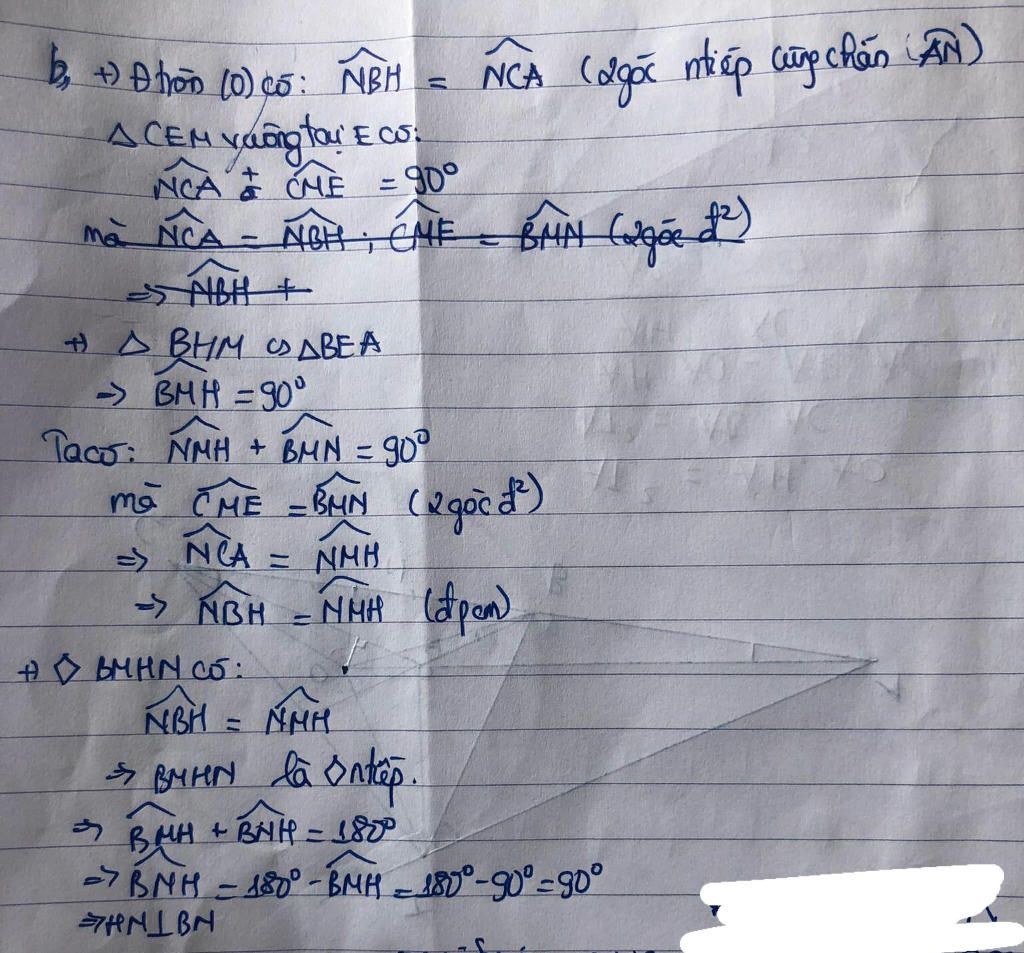 b, +) Đtròn (O) có: NBH = NCA (2góc ntiếp cùng chắn AN)
△CEM vuông tại E có:
NCA + CME = 90°
mà NCA = NBH ; CME = BMN (2góc đ²)
=> NBH +
+) △ BHM ∽ △BEA
=> BMH = 90°
Ta có: NMH + BMN = 90°
mà CME = BMN (2góc đ²)
=> NCA = NMH
=> NBH = NMH (đpcm)
+) ◇ BMHN có:
NBH = NMH
=> BMHN là ◇ntiếp.
=> BMH + BNH = 180°
=> BNH = 180° - BMH = 180° - 90° = 90°
=> HN⊥BN